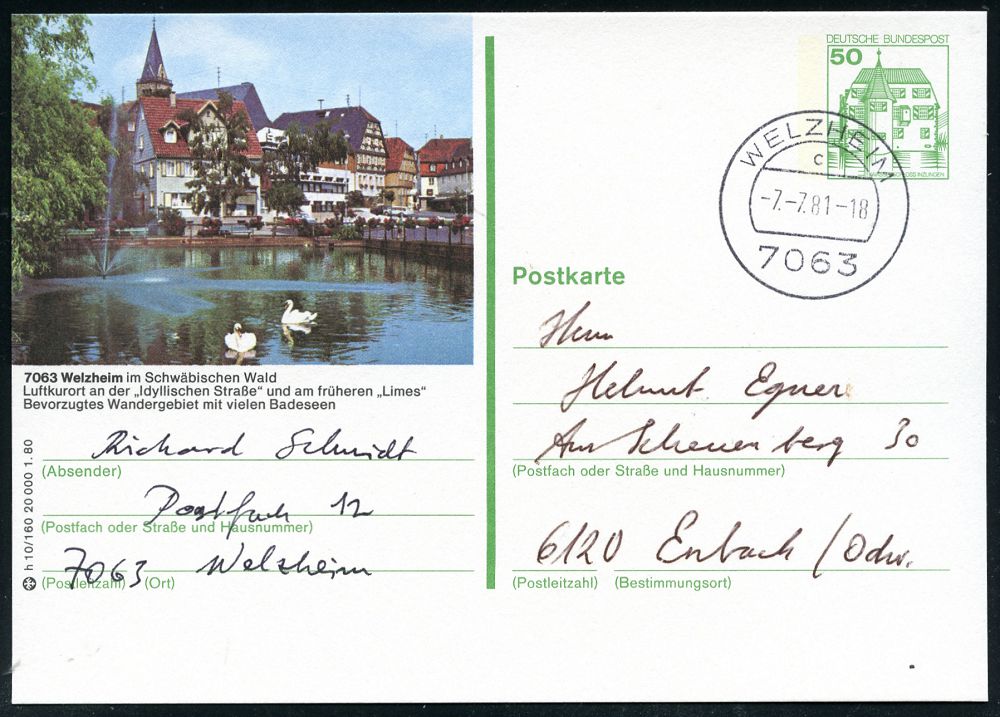 DEUTSCHE BUNDESPOST
50
WASSERSCHLOSS INZLINGEN
WELZHEIM
c
-7.-7.81-18
7063
7063 Welzheim im Schwäbischen Wald
Luftkurort an der „Idyllischen Straße" und am früheren „Limes"
Bevorzugtes Wandergebiet mit vielen Badeseen
Richard Schmidt
(Absender)
Postfach 12
(Postfach oder Straße und Hausnummer)
7063 Welzheim
(Postleitzahl) (Ort)
h 10/160 20 000 1. 80
Postkarte
Herrn
Helmut Egner
Am Scheuerberg 30
(Postfach oder Straße und Hausnummer)
6120 Erbach / Odw.
(Postleitzahl) (Bestimmungsort)